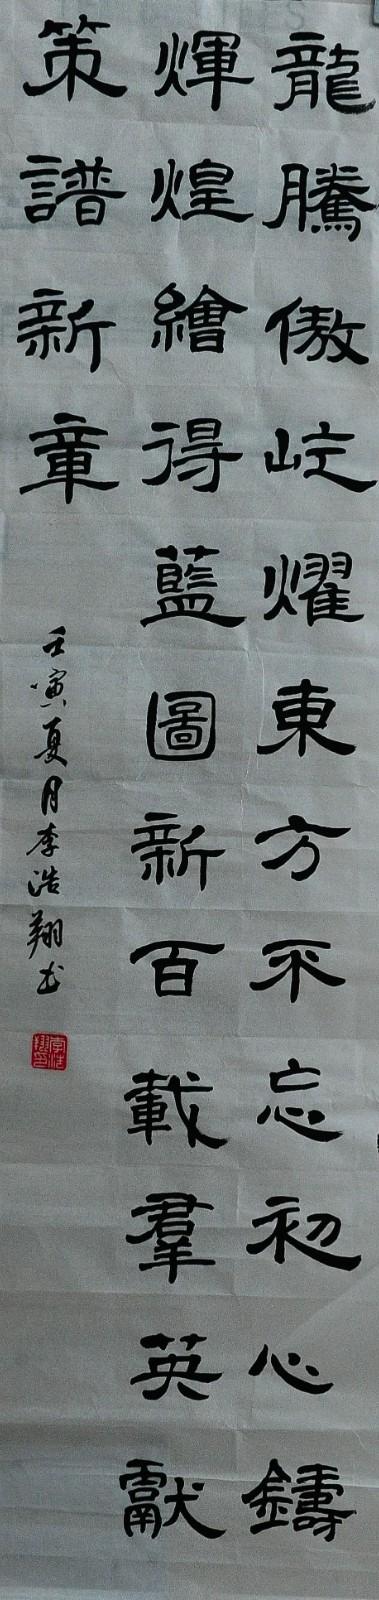 龍騰傲屹耀東方不忘初心鑄
輝煌繪得藍圖新百載羣英獻
策譜新章
壬寅夏月李浩翔书